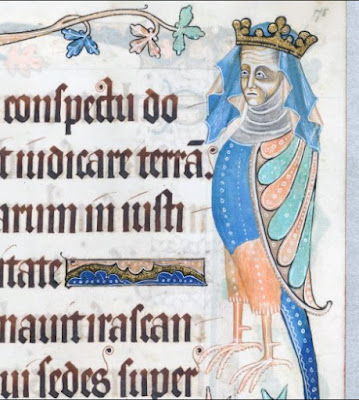 175
conspectu do
t iudicare terrā.
arum in iusti
itate
nauit irascan
ui sedes super